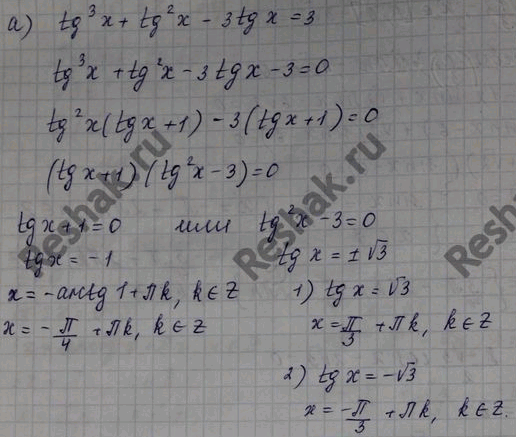 а) tg³x + tg²x - 3tgx = 3
tg³x + tg²x - 3tgx - 3 = 0
tg²x(tgx + 1) - 3(tgx + 1) = 0
(tgx + 1)(tg²x - 3) = 0
tgx + 1 = 0 или tg²x - 3 = 0
tgx = -1 tgx = ±√3
x = -arctg 1 + πk, k ∈ Z 1) tgx = √3
x = -π/4 + πk, k ∈ Z x = π/3 + πk, k ∈ Z
2) tgx = -√3
x = -π/3 + πk, k ∈ Z.
Reshak.ru
Reshak.ru
Reshak.ru